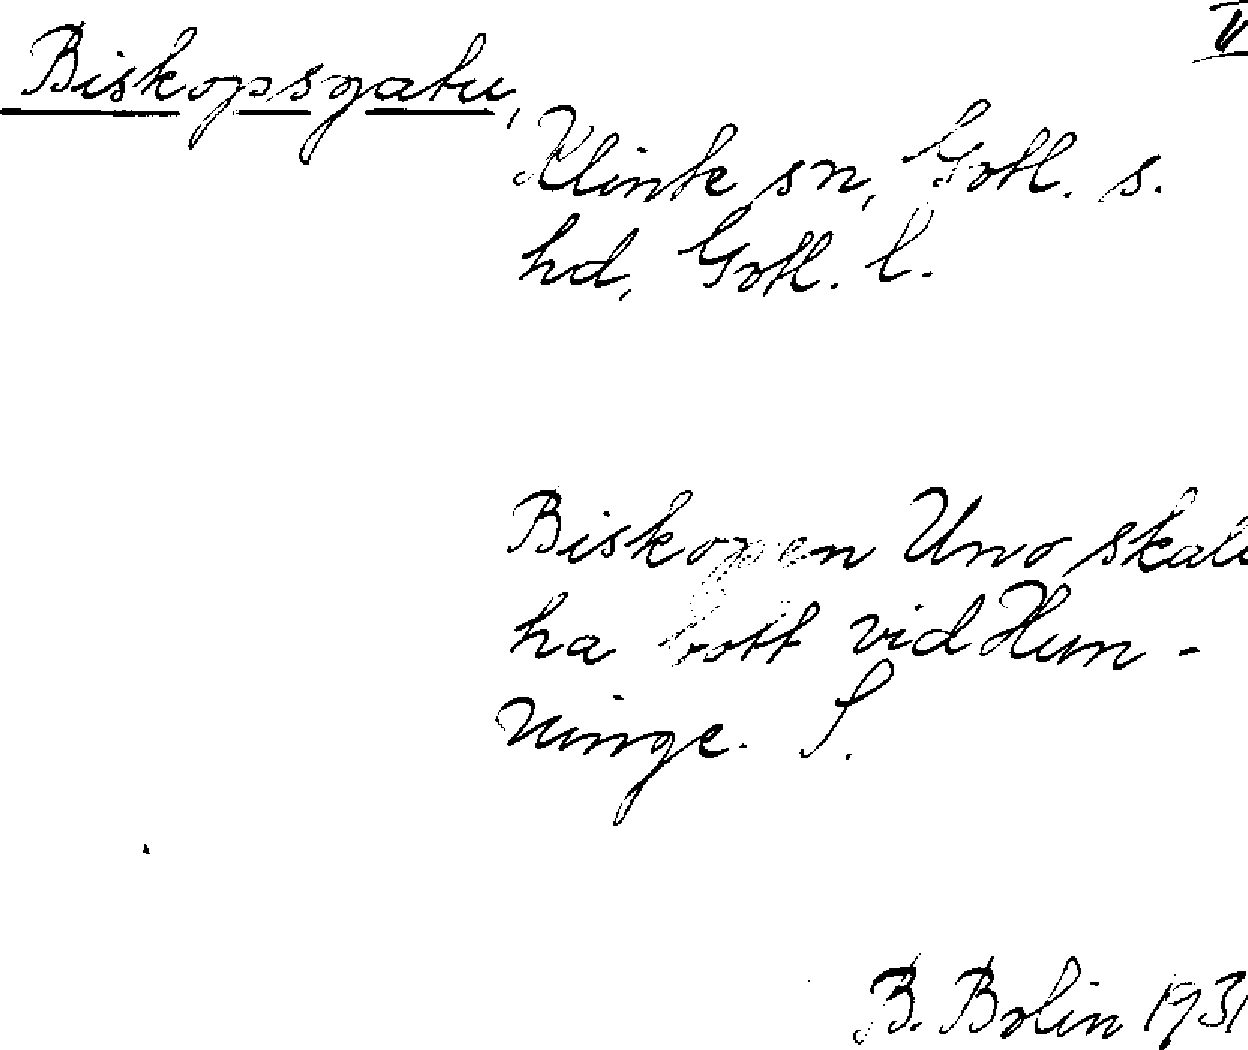 II
Biskopsgatu,
Klinte sn, Gotl. s.
hd, Gotl. l.
Biskopen Uno skall
ha bott vid Hun-
ninge. S.
B. Bolin 1931